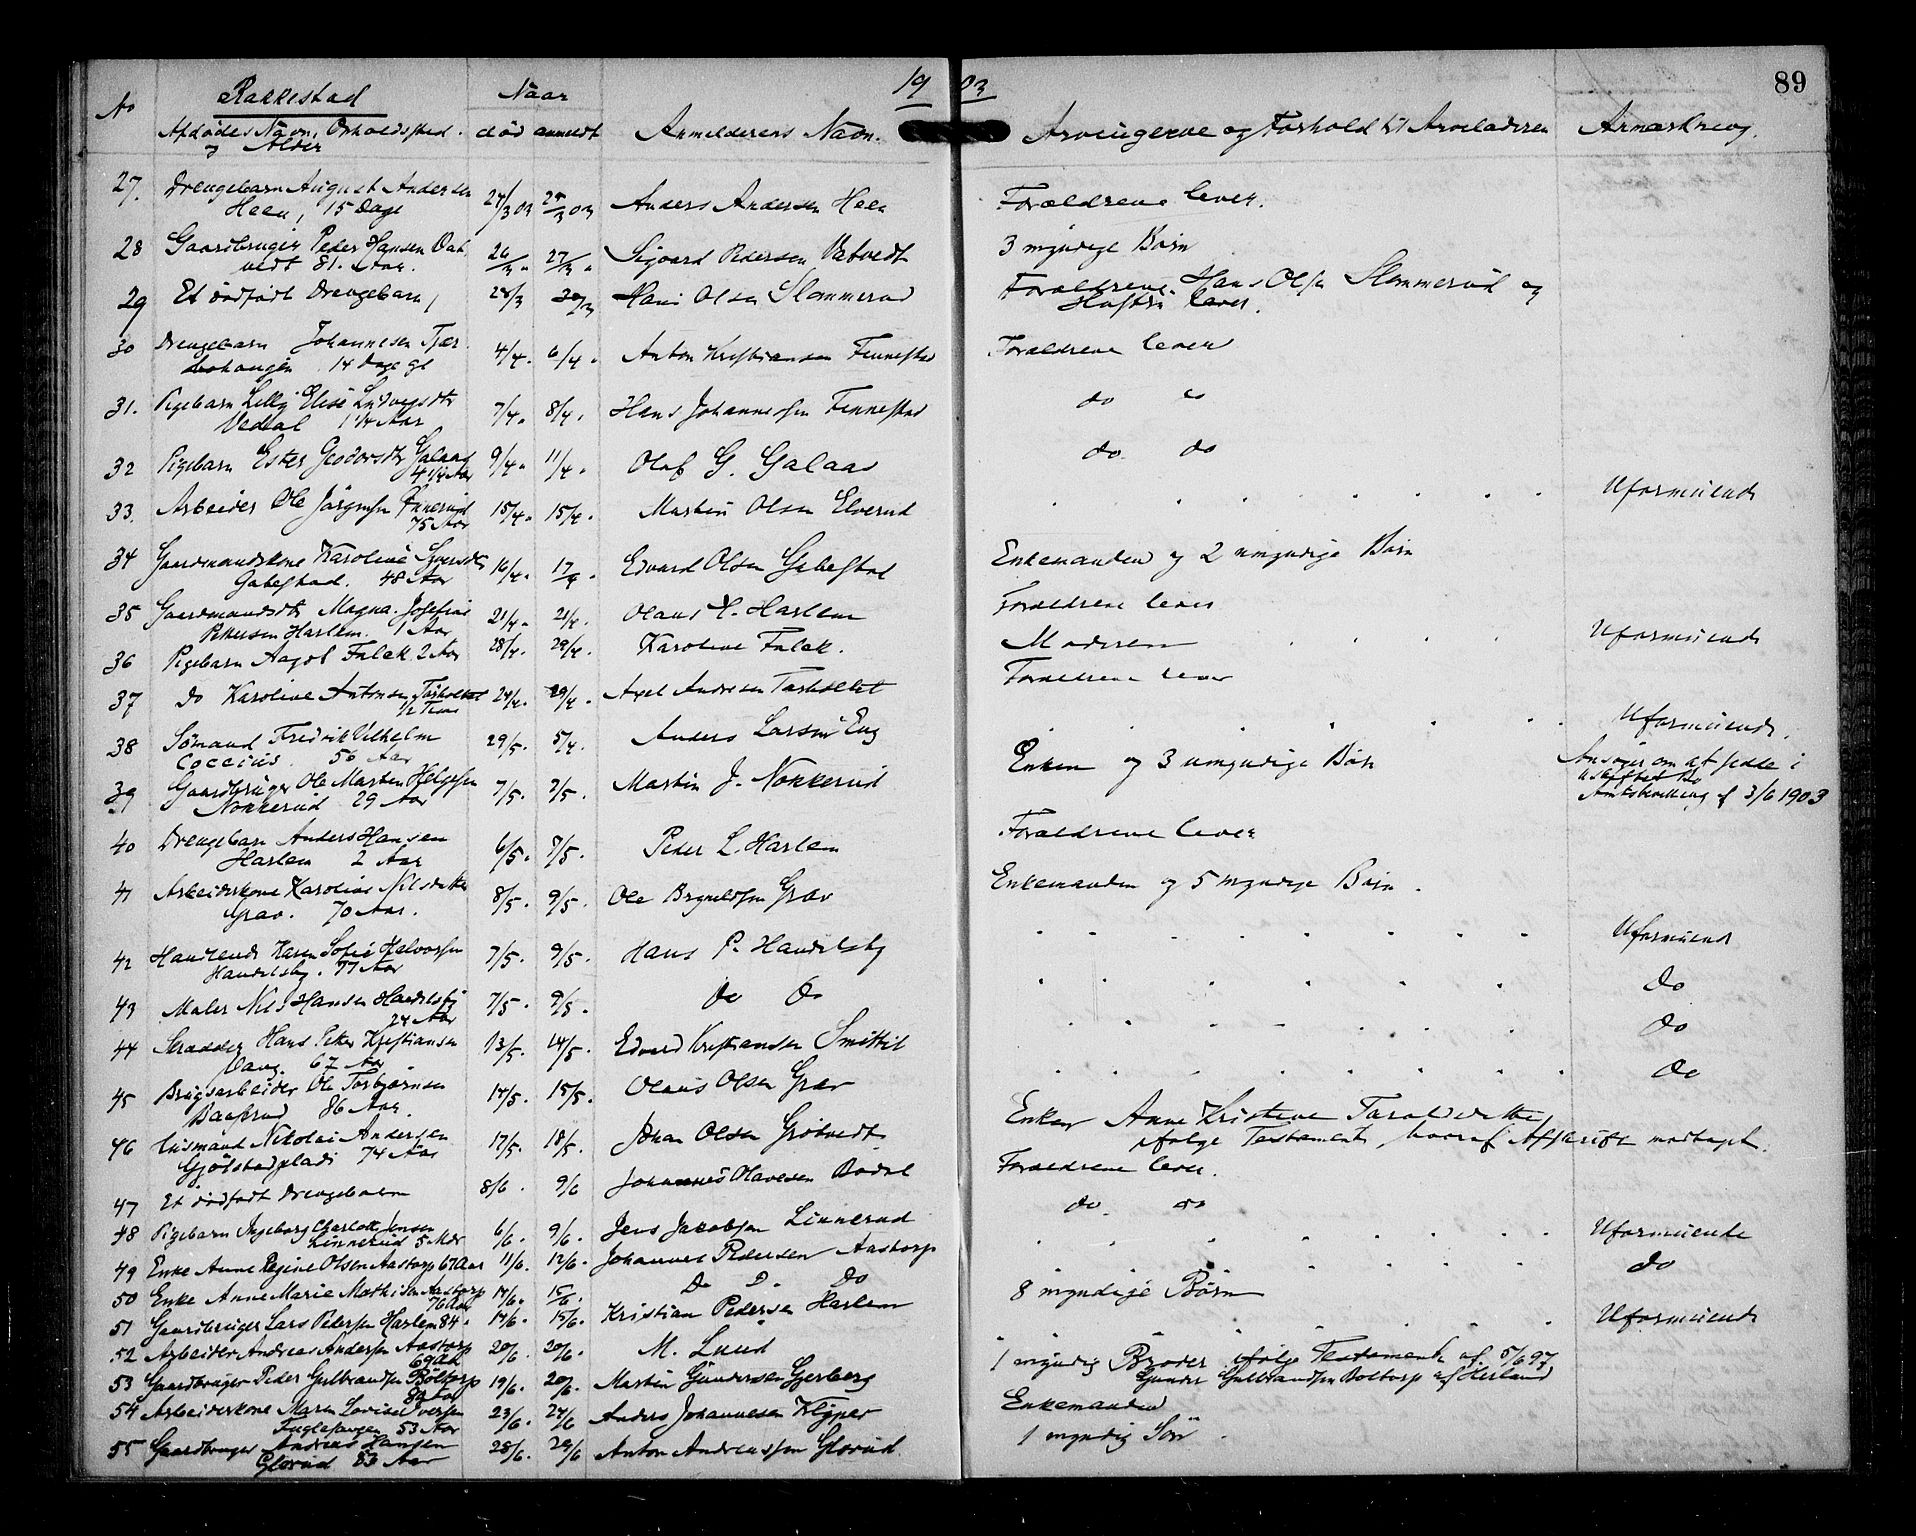 1903
89
No
Rakkestad
Naar
Afdødes Navn, Opholdssted og Alder
død
anmeldt
Anmelderens Navn.
Arvingerne og Forhold til Arveladeren
Anmærkning.
27. Drengebarn August Andersen Heen, 15 Dage 24/3 03 25/3 03 Anders Andersen Heen Forældrene lever.
28 Gaardbruger Peder Hansen Vatvedt 81. Aar. 26/3 " 27/3 " Sigvard Pedersen Vatvedt 3 myndige Børn
29 Et dødfødt Drengebarn, 28/3 30/3 Hans Olsen Slommerud Forældrene Hans Olsen Slommerud og Hustru lever.
30 Drengebarn Johannesen 14 Dage gl 4/4. 6/4. Anton Kristiansen Finnestad Forældrene lever
31. Pigebarn Lilly Elise Ludvigsdtr 7/4. 8/4. Hans Johannesen Finnestad do do
32 Pigebarn Ester Galaas 4 1/4 Aar 9/4. 11/4. Olaf G. Galaas do do
33. Arbeider Ole Jørgensen 75 Aar 15/4. 15/4. Martin Olsen Elverud Uformuende
34 Gaardmandskone Karoline Syversdtr Gabestad. 48 Aar 16/4. 17/4. Edvard Olsen Gabestad Enkemanden og 2 umyndige Børn
35 Gaardmandsdtr Magna Josefine Pettersen Harlem. 1 Aar 21/4. 21/4. Olaus H. Harlem Forældrene lever
36 Pigebarn Aagot Falck 2 Aar 28/4. 29/4. Karoline Falck. Moderen Uformuende
37 do Karoline Antonsen Tasholtet 1/2 Time 24/4. 29/4. Axel Andresen Tasholtet Forældrene lever
38 Sømand Fredrik Vilhelm Coccius. 56 Aar 29/5. 5/4. Anders Larsen Eng Uformuende.
39 Gaardbruger Ole Martin Helgesen Nokkerud 29 Aar 7/5. 7/5. Martin J. Nokkerud Enken og 3 umyndige Børn Ansøger om at sidde i uskiftet Bo Amtsbevilling af 3/6 1903
40 Drengebarn Anders Hansen Harlem 2 Aar 6/5. 7/5. Peder L. Harlem Forældrene lever
41 Arbeiderskone Karoline Nilsdatter Grav. 70 Aar. 8/5. 9/5. Ole Brynildsen Grav Enkemanden og 5 myndige Børn.
42 Handlende Karen Sofie Halvorsen Handelsby. 77 Aar 7/5. 9/5. Hans P. Handelsby Uformuende
43 Maler Nils Hansen Handelsby 24 Aar 7/5. 9/5. do do do
44 Skrædder Hans Peter Kristiansen 67 Aar 13/5. 14/5. Edvard Kristiansen Smittil do
45 Brugsarbeider Ole Torbjørnsen 86 Aar. 14/5. 15/5. Olaus Olsen Grav do
46 Husmand Nikolai Andersen Gjølstadplads 74 Aar 17/5. 18/5. Johan Olsen Grøtvedt Enken Anne Kristine Taraldsdatter ifølge Testamente, hvoraf Afskrift modtaget.
47 Et dødfødt Drengebarn 8/6. 9/6 Johannes Olavesen Bødal Forældrene lever.
48 Pigebarn Ingeborg Charlotte Jensen Linnerud 5 Mdr 6/6. 9/6. Jens Jacobsen Linnerud do. do
49 Enke Anne Regine Olsen Aastorp 67 Aar 11/6. 12/6. Johannes Pedersen Aastorp Uformuende
50 Enke Anne Marie Mathisen Aastorp 76 Aar 14/6. 15/6. Do Do Do do
51 Gaardbruger Lars Pedersen Harlem 84 " 14/6. 15/6. Kristian Pedersen Harlem 8 myndige Børn
52 Arbeider Andreas Andersen Aastorp 69 Aar 20/6. 20/6. M. Lund Uformuende
53 Gaardbruger Peder Gulbrandsen Bøltorp 80 Aar 19/6. 20/6. Martin Gundersen Gjerberg 1 myndig Broder ifølge Testamente af 5/6 97 Gunder Gulbrandsen Boltorp af Herland
54 Arbeiderskone Maren Lovise Iversen Fuglehaugen 53 Aar 23/6. 24/6 Anders Johannesen Klypper Enkemanden
55 Gaardbruger Andreas Hansen Glorud 83 Aar 28/6. 29/6 Anton Andreassen Glorud. 1 myndig Søn.